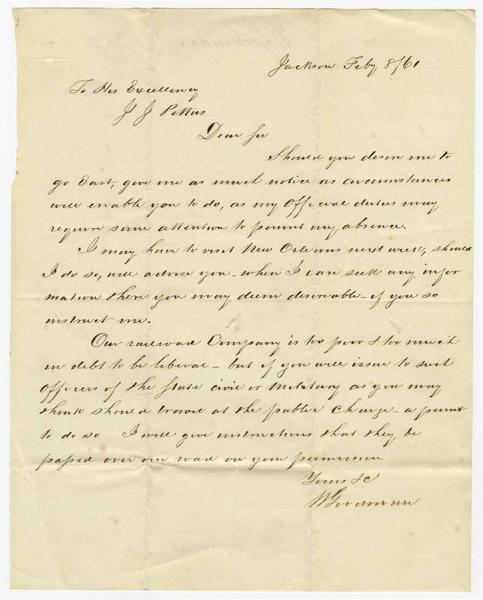 Jackson Feby 8/61
To His Excellency
J J Pettus
Dear Sir
Should you desire me to
go East, give me as much notice as circumstances
will enable you to do, as my Official duties may
require some attention to permit my absence.
I may have to visit New Orleans next week, should
I do so, will advise you - when I can seek any infor
mation there you may deem desireable if you so
instruct me.
Our railroad Company is too poor & too much
in debt to be liberal - but if you will issue to such
Officers of the State civil or Military as you may
think should travel at the public charge - a permit
to do so I will give instructions that they be
passed over our road on your permission
Yours &c
W Goodman